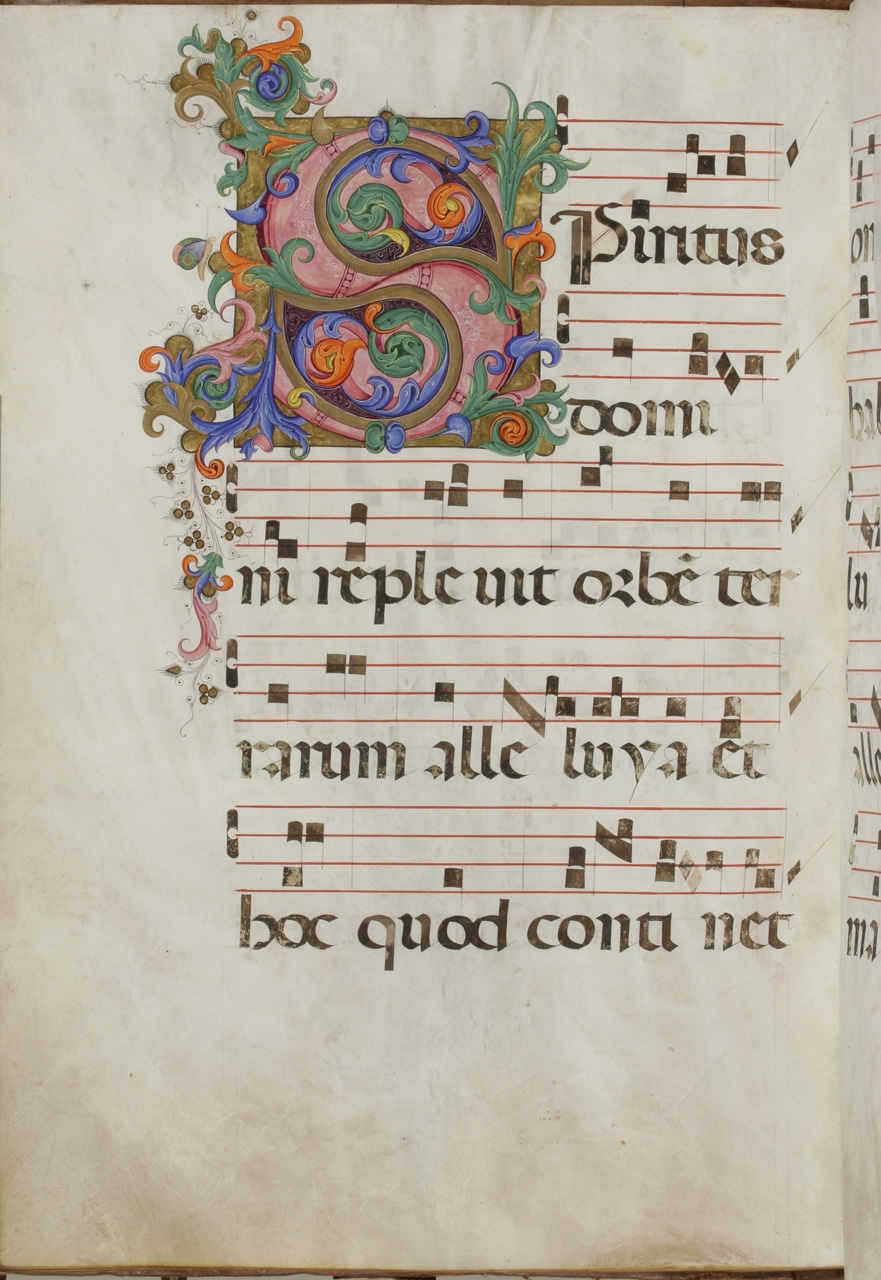 SPiritus
domi
ni reple uit orbē ter
rarum alle luya et
hoc quod conti net